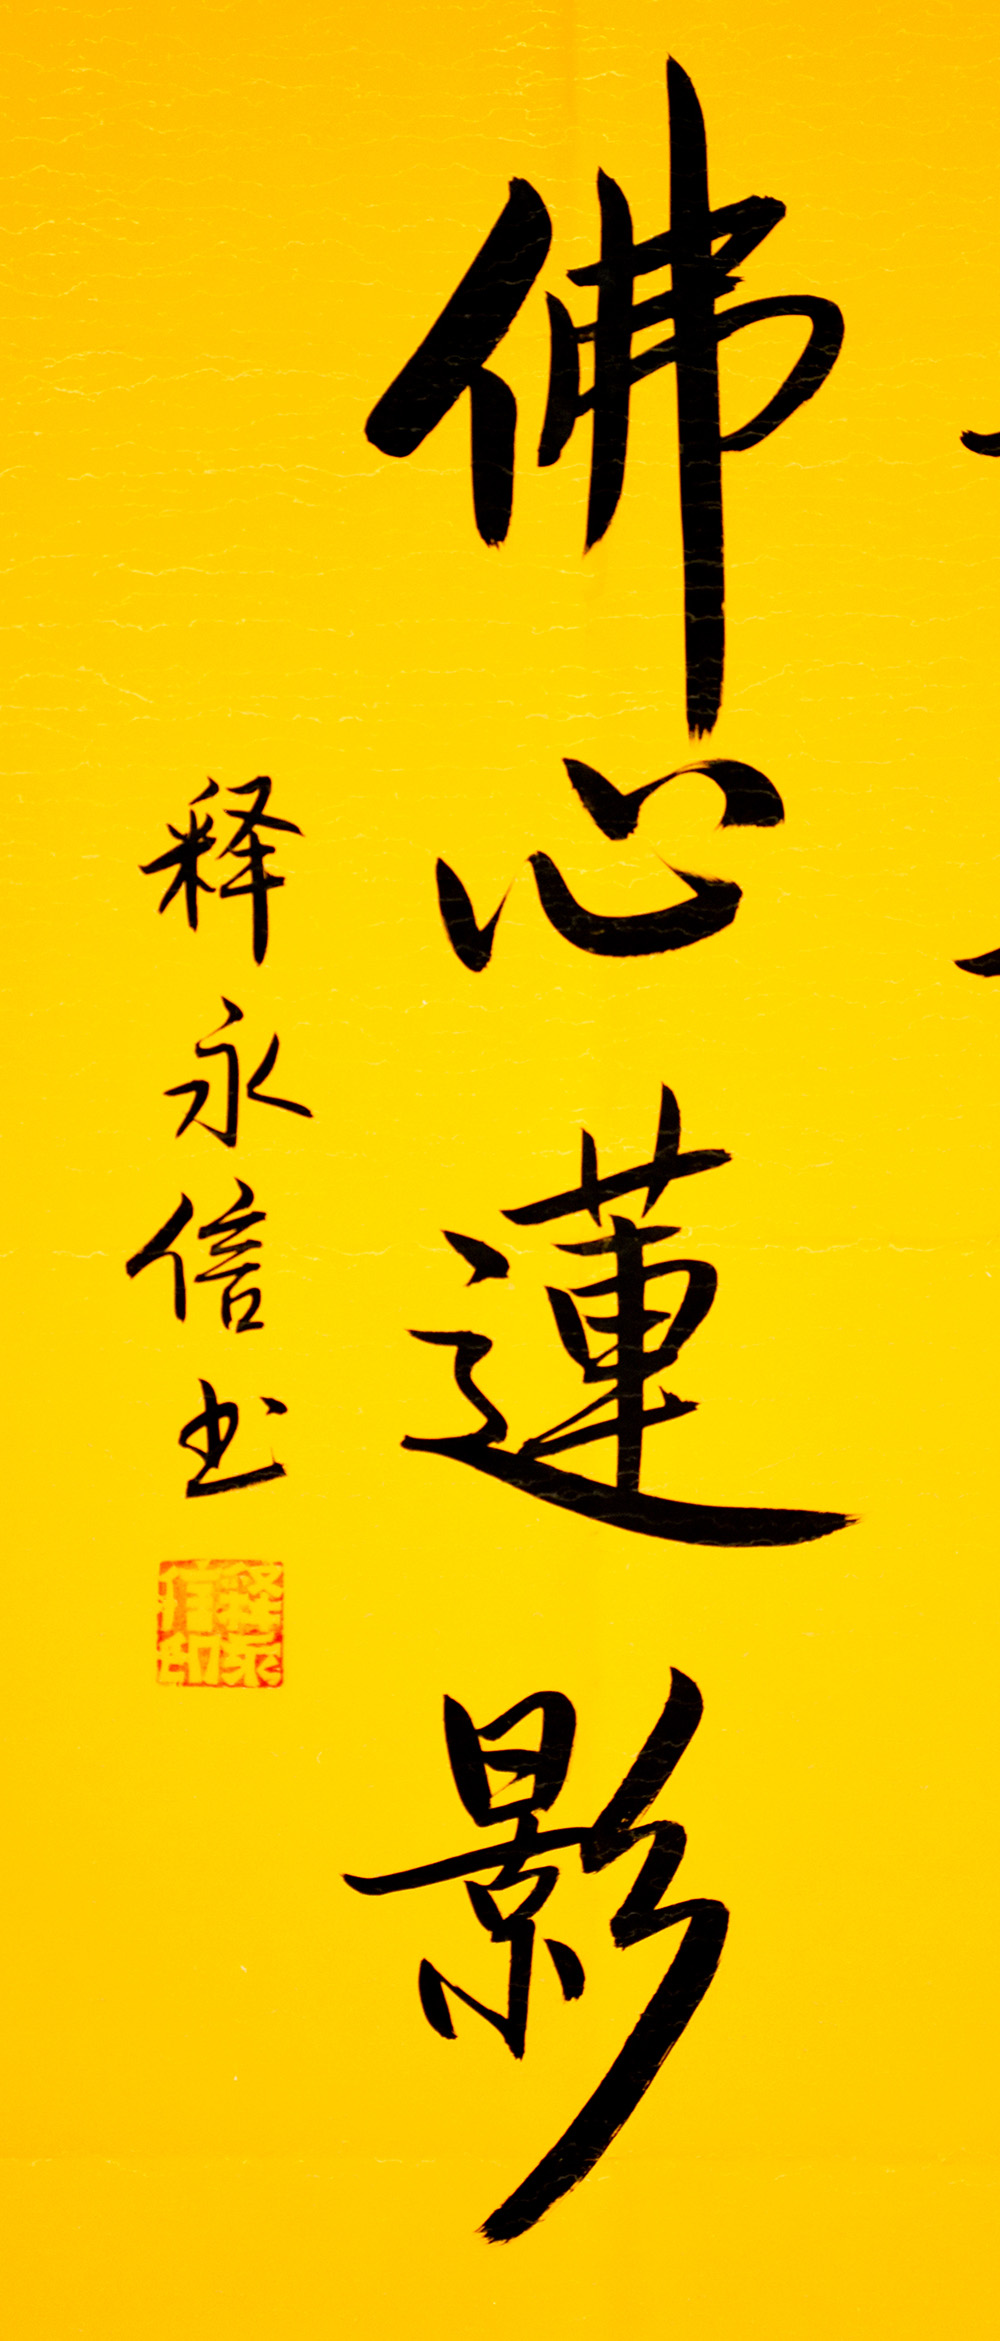 佛心蓮影
释永信书
释永信印